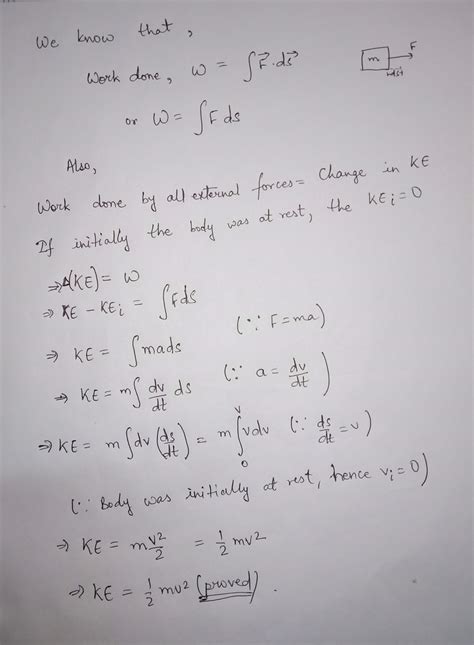 We know that,
Work done, W = ∫F⃗.ds⃗
m F
|ds|
or W = ∫F ds
Also,
Work done by all external forces = Change in KE
If initially the body was at rest, the KEi = 0
⇒ Δ(KE) = W
⇒ KE - KEi = ∫Fds
⇒ KE = ∫mads (∵ F = ma)
⇒ KE = m∫ dv/dt ds (∵ a = dv/dt)
⇒ KE = m∫dv(ds/dt) = m∫₀ᵛ vdv (∵ ds/dt = v)
(∵ Body was initially at rest, hence vi = 0)
⇒ KE = m v²/2 = 1/2 mv²
⇒ KE = 1/2 mv² (proved).